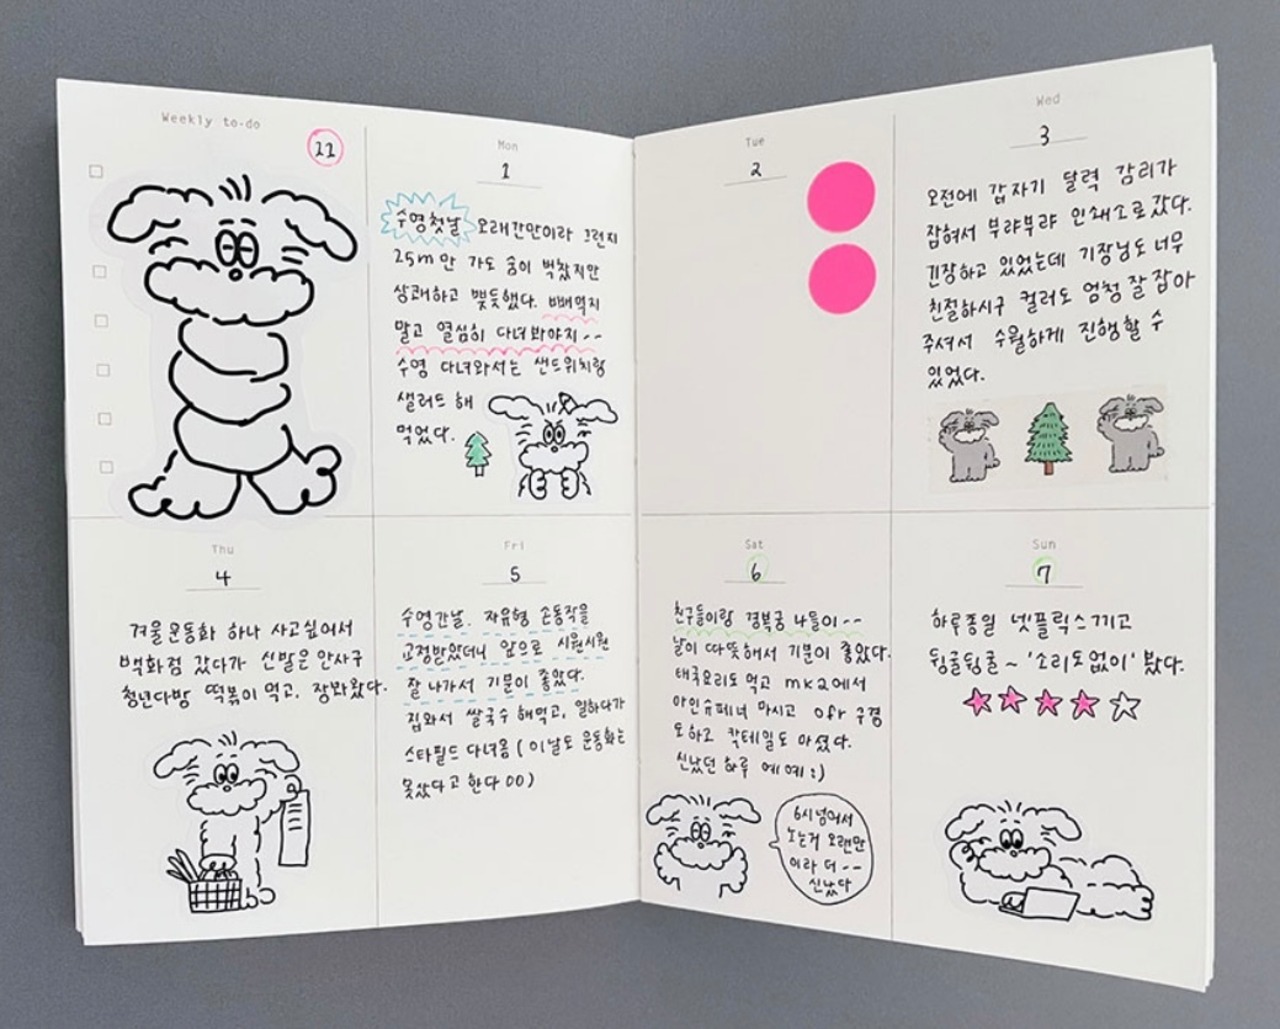 Weekly to-do
11
Mon
1
수영첫날 오래간만이라 그런지
25m만 가도 숨이 벅찼지만
상쾌하고 뿌듯했다. 빼먹지
말고 열심히 다녀봐야지--
수영 다녀와서는 샌드위치랑
샐러드 해
먹었다.
Tue
2
Wed
3
오전에 갑자기 달력 감리가
잡혀서 부랴부랴 인쇄소로갔다.
긴장하고 있었는데 기장님도 너무
친절하시구 컬러도 엄청 잘 잡아
주셔서 수월하게 진행할 수
있었다.
Thu
4
겨울운동화 하나 사고싶어서
백화점 갔다가 신발은 안사구
청년다방 떡볶이 먹고, 장봐왔다.
Fri
5
수영간날. 자유형 손동작을
교정받았더니 앞으로 시원시원
잘 나가서 기분이 좋았다.
집와서 쌀국수 해먹고, 일하다가
스타필드 다녀옴 (이날도 운동화는
못샀다고 한다 00)
Sat
6
친구들이랑 경복궁 나들이--
날이 따뜻해서 기분이 좋았다.
태국요리도 먹고 mk2에서
아인슈페너 마시고 ofr 구경
도하고 칵테일도 마셨다.
신났던 하루 예예:)
6시넘어서
노는거 오랜만
이라 더--
신났다
Sun
7
하루종일 넷플릭스끼고
뒹굴뒹굴~ '소리도없이' 봤다.